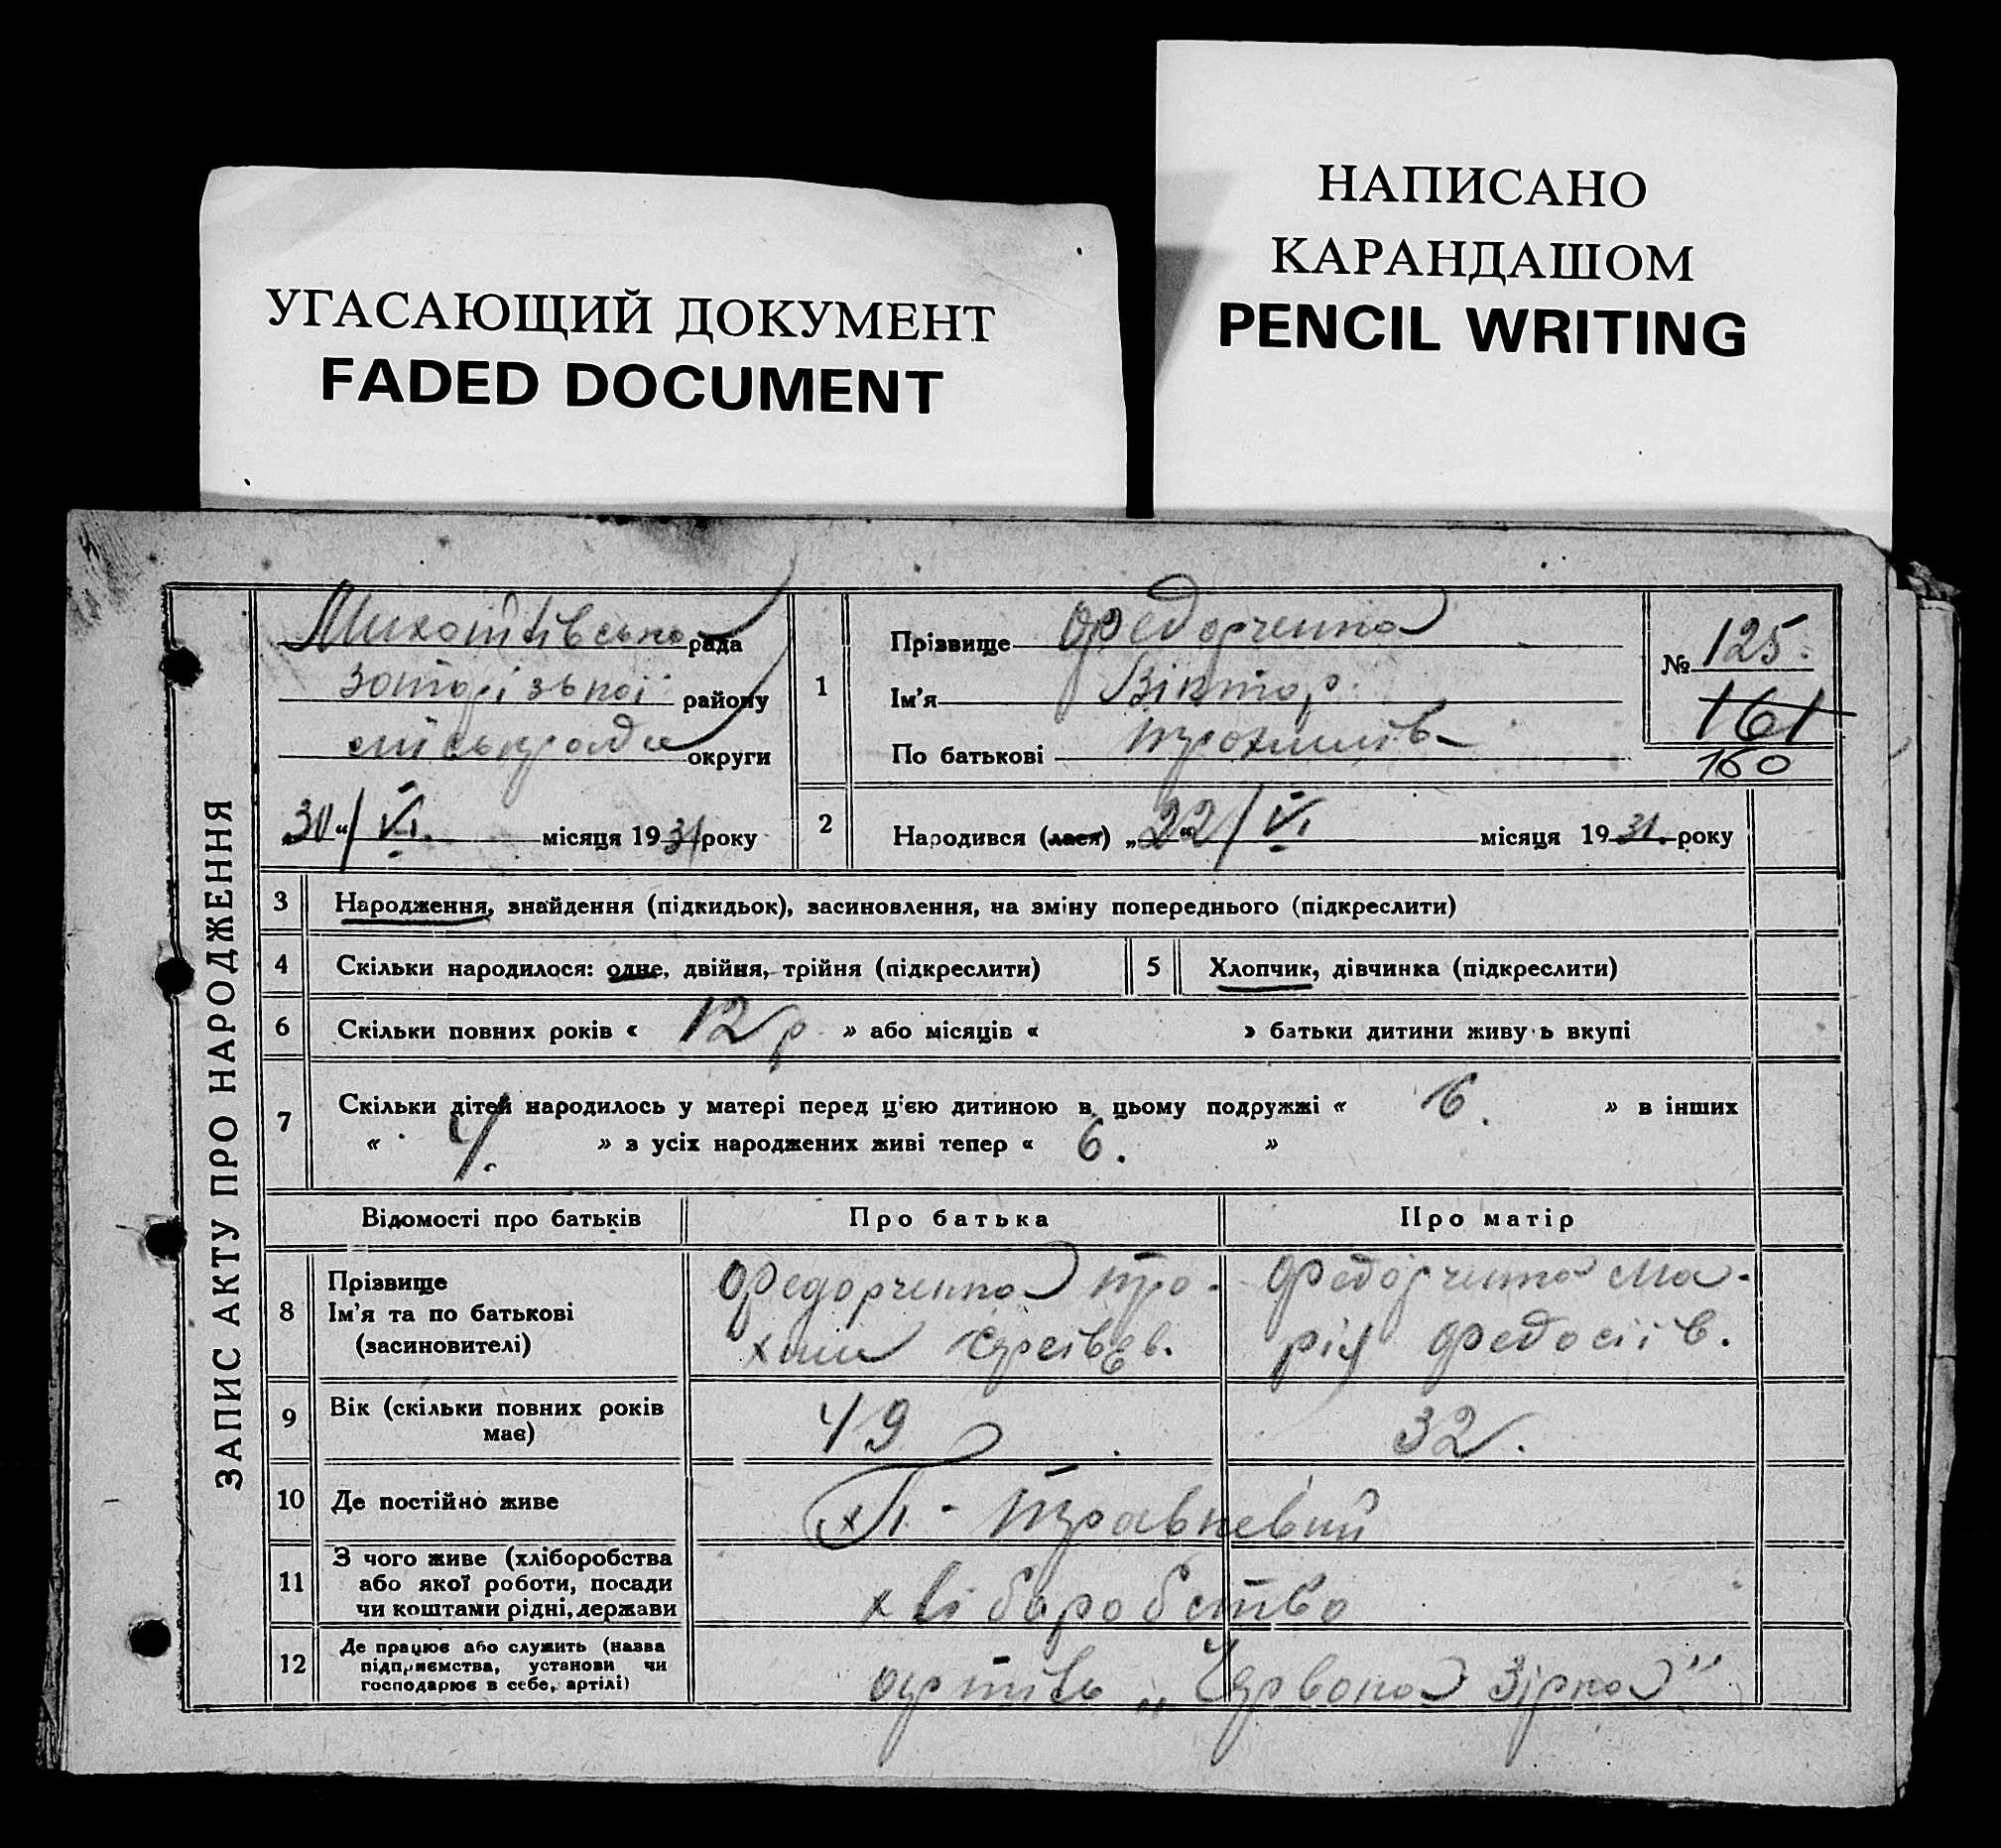 УГАСАЮЩИЙ ДОКУМЕНТ
FADED DOCUMENT
НАПИСАНО
КАРАНДАШОМ
PENCIL WRITING
ЗАПИС АКТУ ПРО НАРОДЖЕННЯ
Михайлівська рада
району
міськради округи
30 “/VI. місяця 1931 року
1
Прізвище Федорченко
Ім’я Віктор
По батькові Трохимів
№ 125.
161
160
2 Народився (лася) „22“/VI місяця 1931. року
3 Народження, знайдення (підкидьок), засиновлення, на зміну попереднього (підкреслити)
4 Скільки народилося: одне, двійня, трійня (підкреслити) 5 Хлопчик, дівчинка (підкреслити)
6 Скільки повних років « 12 р » або місяців « » батьки дитини живу ь вкупі
7 Скільки дітей народилось у матері перед ц’єю дитиною в цьому подружжі « 6. » в інших
« » з усіх народжених живі тепер « 6. »
Відомості про батьків Про батька Про матір
8 Прізвище
Ім’я та по батькові
(засиновителі)
Федорченко Тро-
хим
Федорченко Ма-
рія Федосіїв.
9 Вік (скільки повних років
має) 49 32.
10 Де постійно живе х. Травневий
11 З чого живе (хліборобства
або якої роботи, посади
чи коштами рідні, держави хліборобство
12 Де працює або служить (назва
підприємства, установи чи
господарює в себе, артілі) артіль „Червона Зірка"